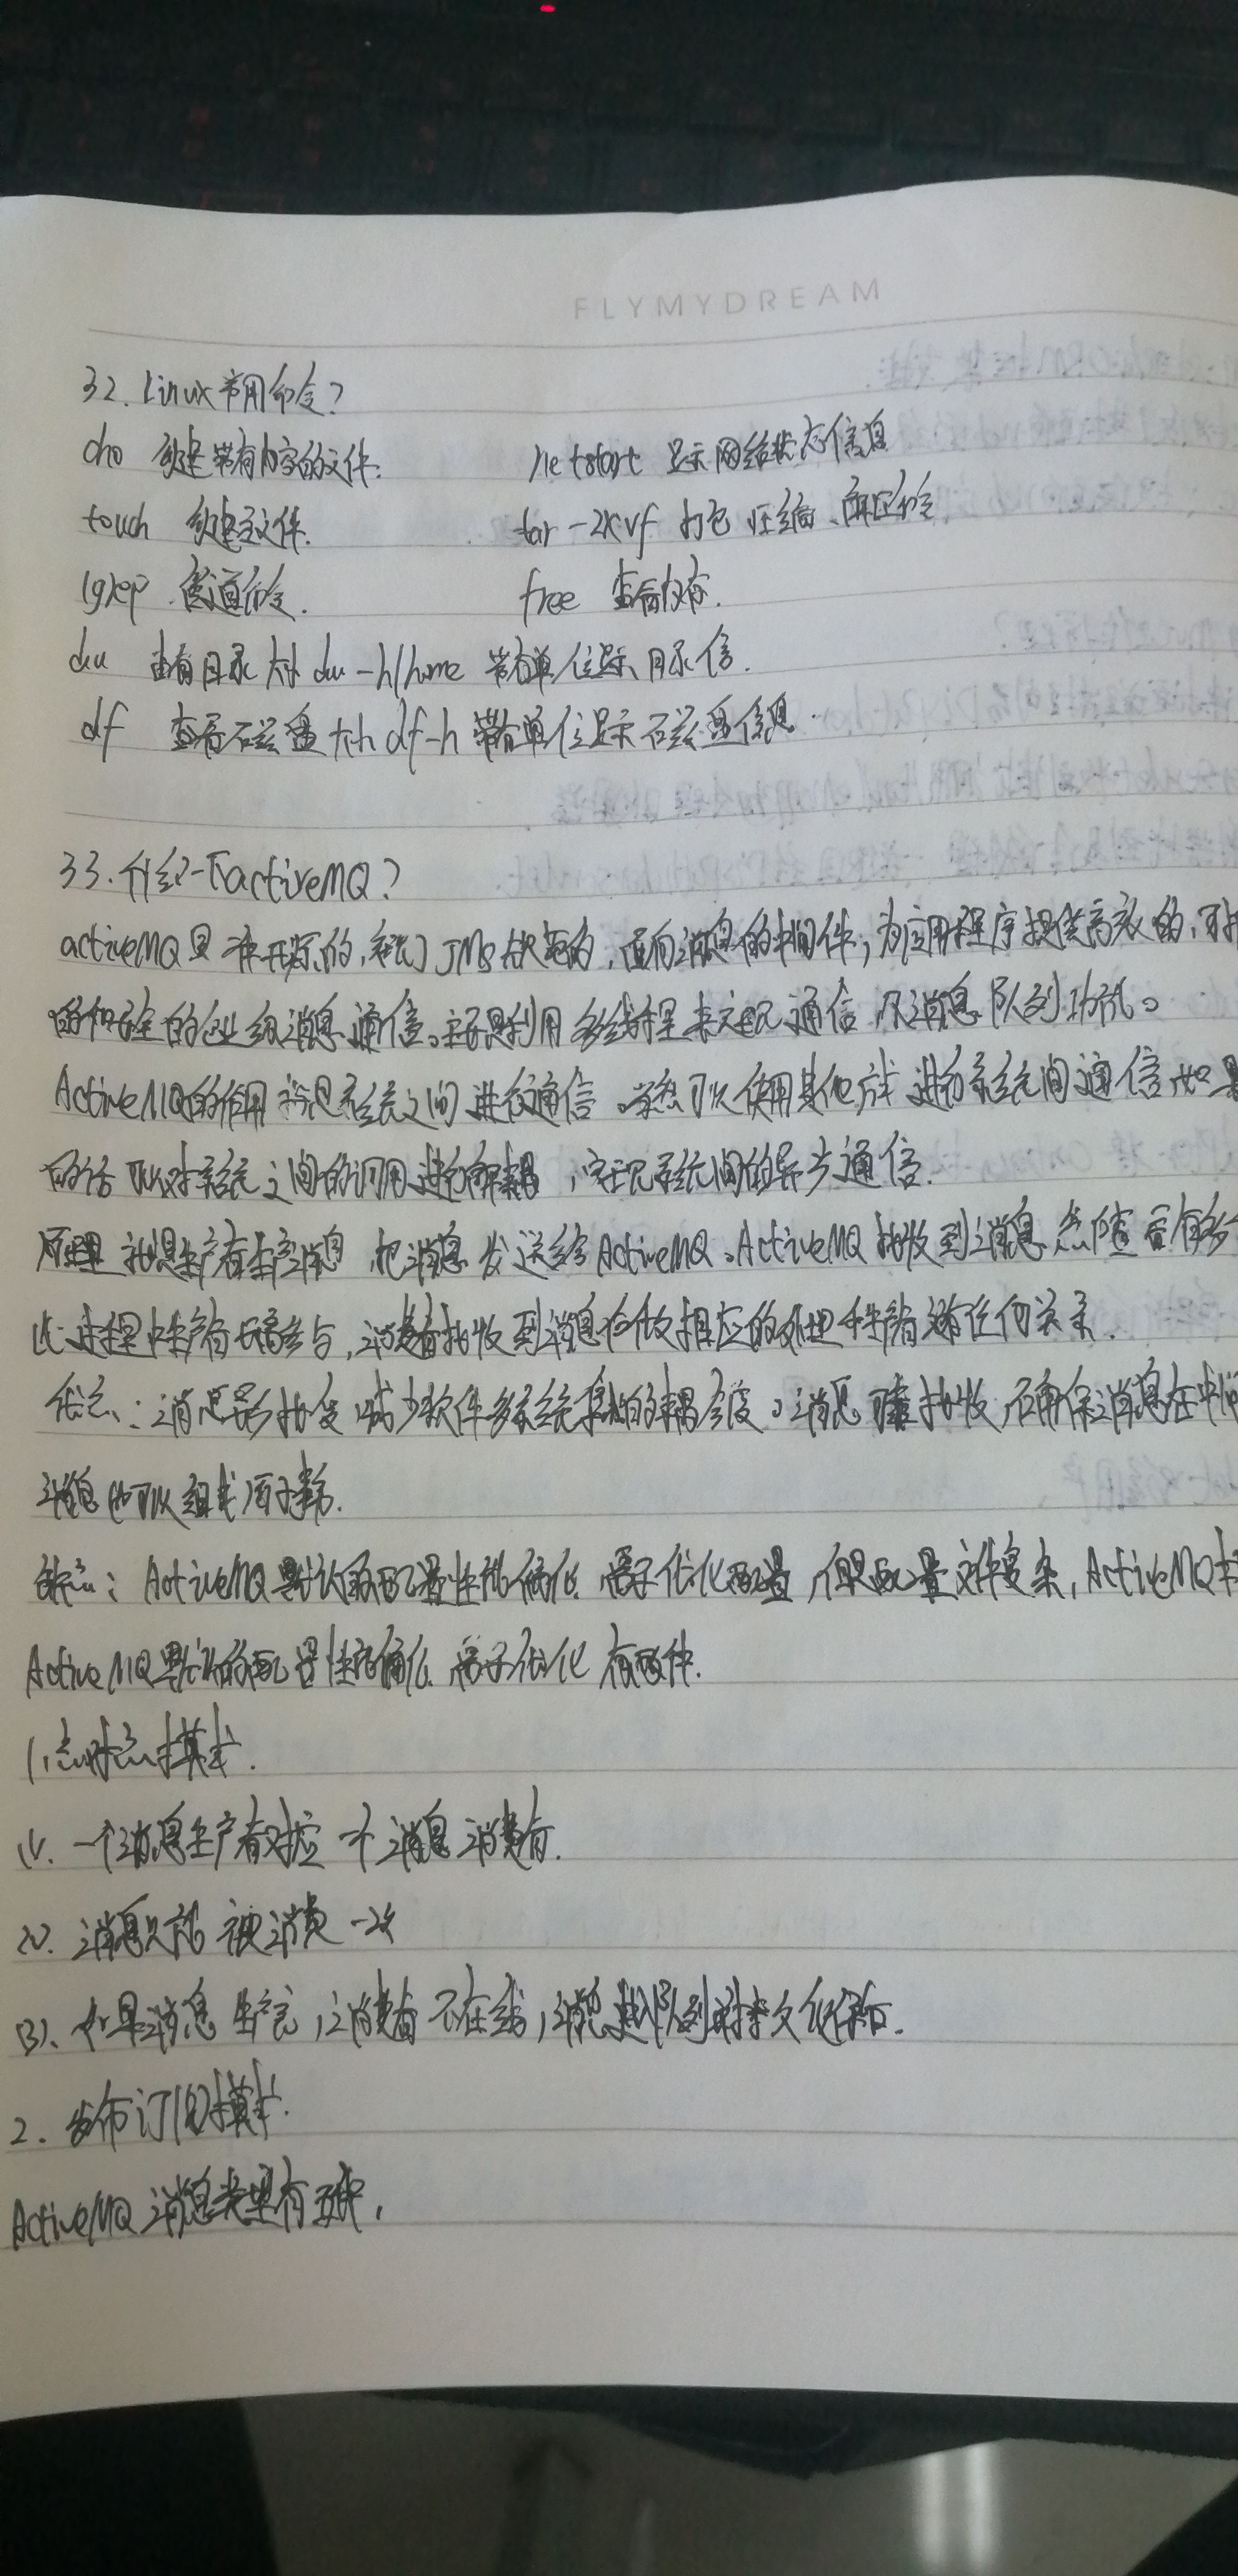 FLYMYDREAM
32. Linux常用命令?
创建带有内容的文件. 显示网络状态信息
touch 创建空文件. tar -zxvf 打包 压缩、解压命令
管道命令. free 查看内存.
du 查看目录大小 du -h /home 带有单位显示目录信.
df 查看磁盘大小 df -h 带有单位显示磁盘信息.
33. 介绍一下activeMQ?
activeMQ是一种开源的,实现了JMS规范的,面向消息的中间件,为应用程序提供高效的、可
的和安全的企业级消息通信。主要是利用多线程来实现通信 及消息队列功能。
ActiveMQ的作用就是系统之间进行通信。当然可以使用其他方式进行系统间通信,如果
的话可以对系统之间的调用进行解耦,实现系统间的异步通信.
原理就是生产者生产消息,把消息发送给ActiveMQ。ActiveMQ接收到消息,然后查看有多
此过程中生产者不需参与,消费者接收到消息后做相应的处理和生产者没有任何关系.
优点:消息异步接收,减少软件多系统集成的耦合度。消息可靠接收,确保消息在中间
消息也可以组成原子事务.
缺点:ActiveMQ默认的配置性能偏低,需要优化配置,但是配置文件复杂,ActiveMQ
ActiveMQ默认的配置性能偏低,需要优化 有两种.
1、点对点模式.
(1). 一个消息生产者对应一个消息消费者.
(2). 消息只能被消费一次
(3). 如果消息生产完,消费者不在线,消息
2. 发布订阅模式.
ActiveMQ消息类型有五种,